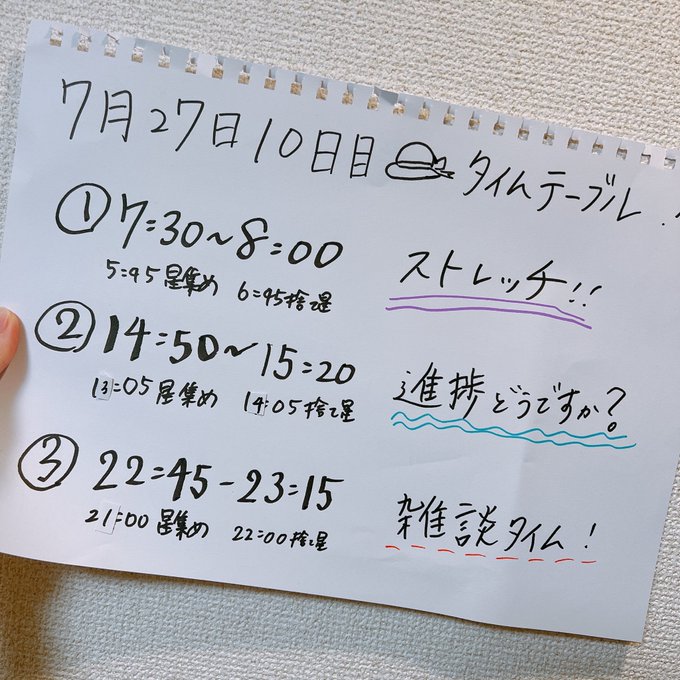 7月27日10日目 タイムテーブル!
① 7:30~8:00 ストレッチ!!
5:45 星集め 6:45 捨て星
② 14:50~15:20 進捗どうですか?
13:05 星集め 14:05 捨て星
③ 22:45-23:15 雑談タイム!
21:00 星集め 22:00 捨て星